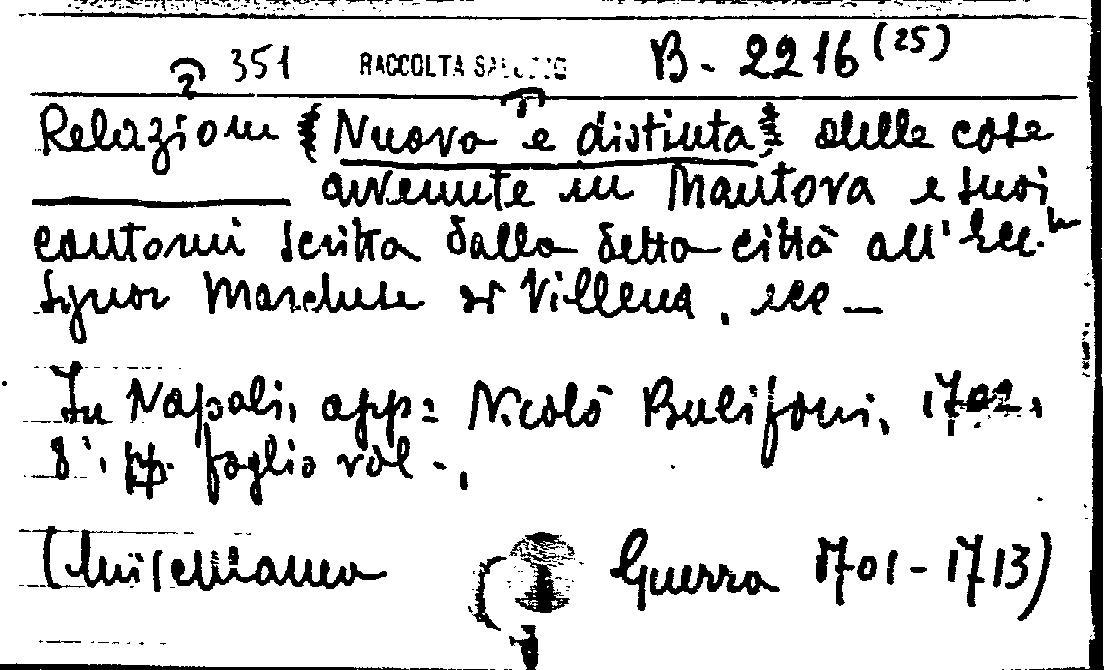 351 RACCOLTA B - 2216 (25)
Relazione Nuova e distinta delle cose
avvenute in Mantova e suoi
contorni scritta dalla detta città all' Ecc.
Signor Marchese di Villena, ecc —
In Napoli, app: Nicolò Bulifoni, 1702.
8°, pp. foglio vol -,
(Miscellanea Guerra 1701-1713)